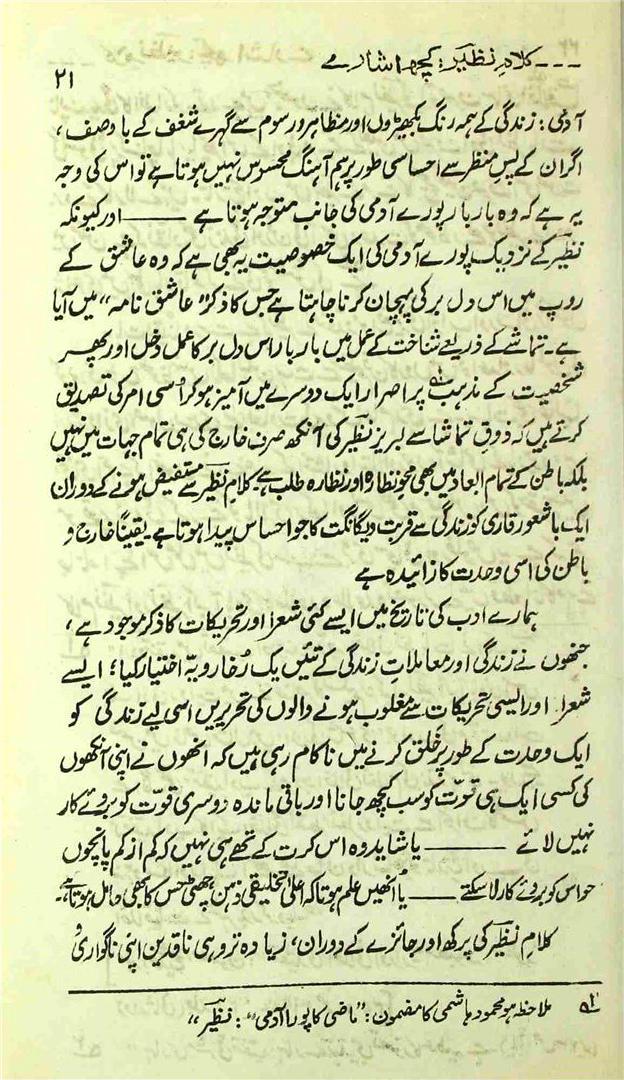 --- کلامِ نظیر: کچھ اشارے
۲۱
آدمی: زندگی کے ہمہ رنگ بکھیڑوں اور مظاہر و رسوم سے گہرے شغف کے با وصف،
اگر ان کے پسِ منظر سے احساسی طور پر ہم آہنگ محسوس نہیں ہوتا ہے تو اس کی وجہ
یہ ہے کہ وہ بار بار پورے آدمی کی جانب متوجہ ہوتا ہے —— اور کیونکہ
نظیر کے نزدیک پورے آدمی کی ایک خصوصیت یہ بھی ہے کہ وہ عاشق کے
روپ میں اس دل بر کی پہچان کرنا چاہتا ہے جس کا ذکر "عاشق نامہ" میں آیا
ہے۔ تماشے کے ذریعے شناخت کے عمل میں بار بار اس دل بر کا عمل دخل اور پھر
شخصیت کے مذہب۱؎ پر اصرار ایک دوسرے میں آمیز ہو کر اُسی امر کی تصدیق
کرتے ہیں کہ ذوقِ تماشا سے لبریز نظیر کی آنکھ صرف خارج کی ہی تمام جہات میں نہیں
بلکہ باطن کے تمام ابعاد میں بھی محوِ نظارہ اور نظارہ طلب ہے۔ کلامِ نظیر سے مستفیض ہونے کے دوران
ایک باشعور قاری کو زندگی سے قربت و یگانگت کا جو احساس پیدا ہوتا ہے۔ یقیناً خارج و
باطن کی اسی وحدت کا زائیدہ ہے
ہمارے ادب کی تاریخ میں ایسے کئی شعرا اور تحریکات کا ذکر موجود ہے،
جنھوں نے زندگی اور معاملاتِ زندگی کے تئیں یک رُخا رویہّ اختیار کیا؛ ایسے
شعرا اور ایسی تحریکات سے مغلوب ہونے والوں کی تحریریں اسی لیے زندگی کو
ایک وحدت کے طور پر خَلق کرنے میں ناکام رہی ہیں کہ انھوں نے اپنی آنکھوں
کی کسی ایک ہی قوّت کو سب کچھ جانا اور باقی ماندہ دوسری قوّت کو بروئے کار
نہیں لائے —— یا شاید وہ اس کرت کے تھے ہی نہیں کہ کم از کم پانچوں
حواس کو بروئے کار لا سکتے —— یا اُنھیں علم ہوتا کہ اعلیٰ تخلیقی ذہن چھٹی حِس کا بھی حامل ہوتا ہے۔
کلامِ نظیر کی پرکھ اور جائزے کے دوران، زیادہ تر وہی ناقدین اپنی ناگواری و
۱؎ ملاحظہ ہو محمود ہاشمی کا مضمون: "ماضی کا پورا آدمی": نظیر"